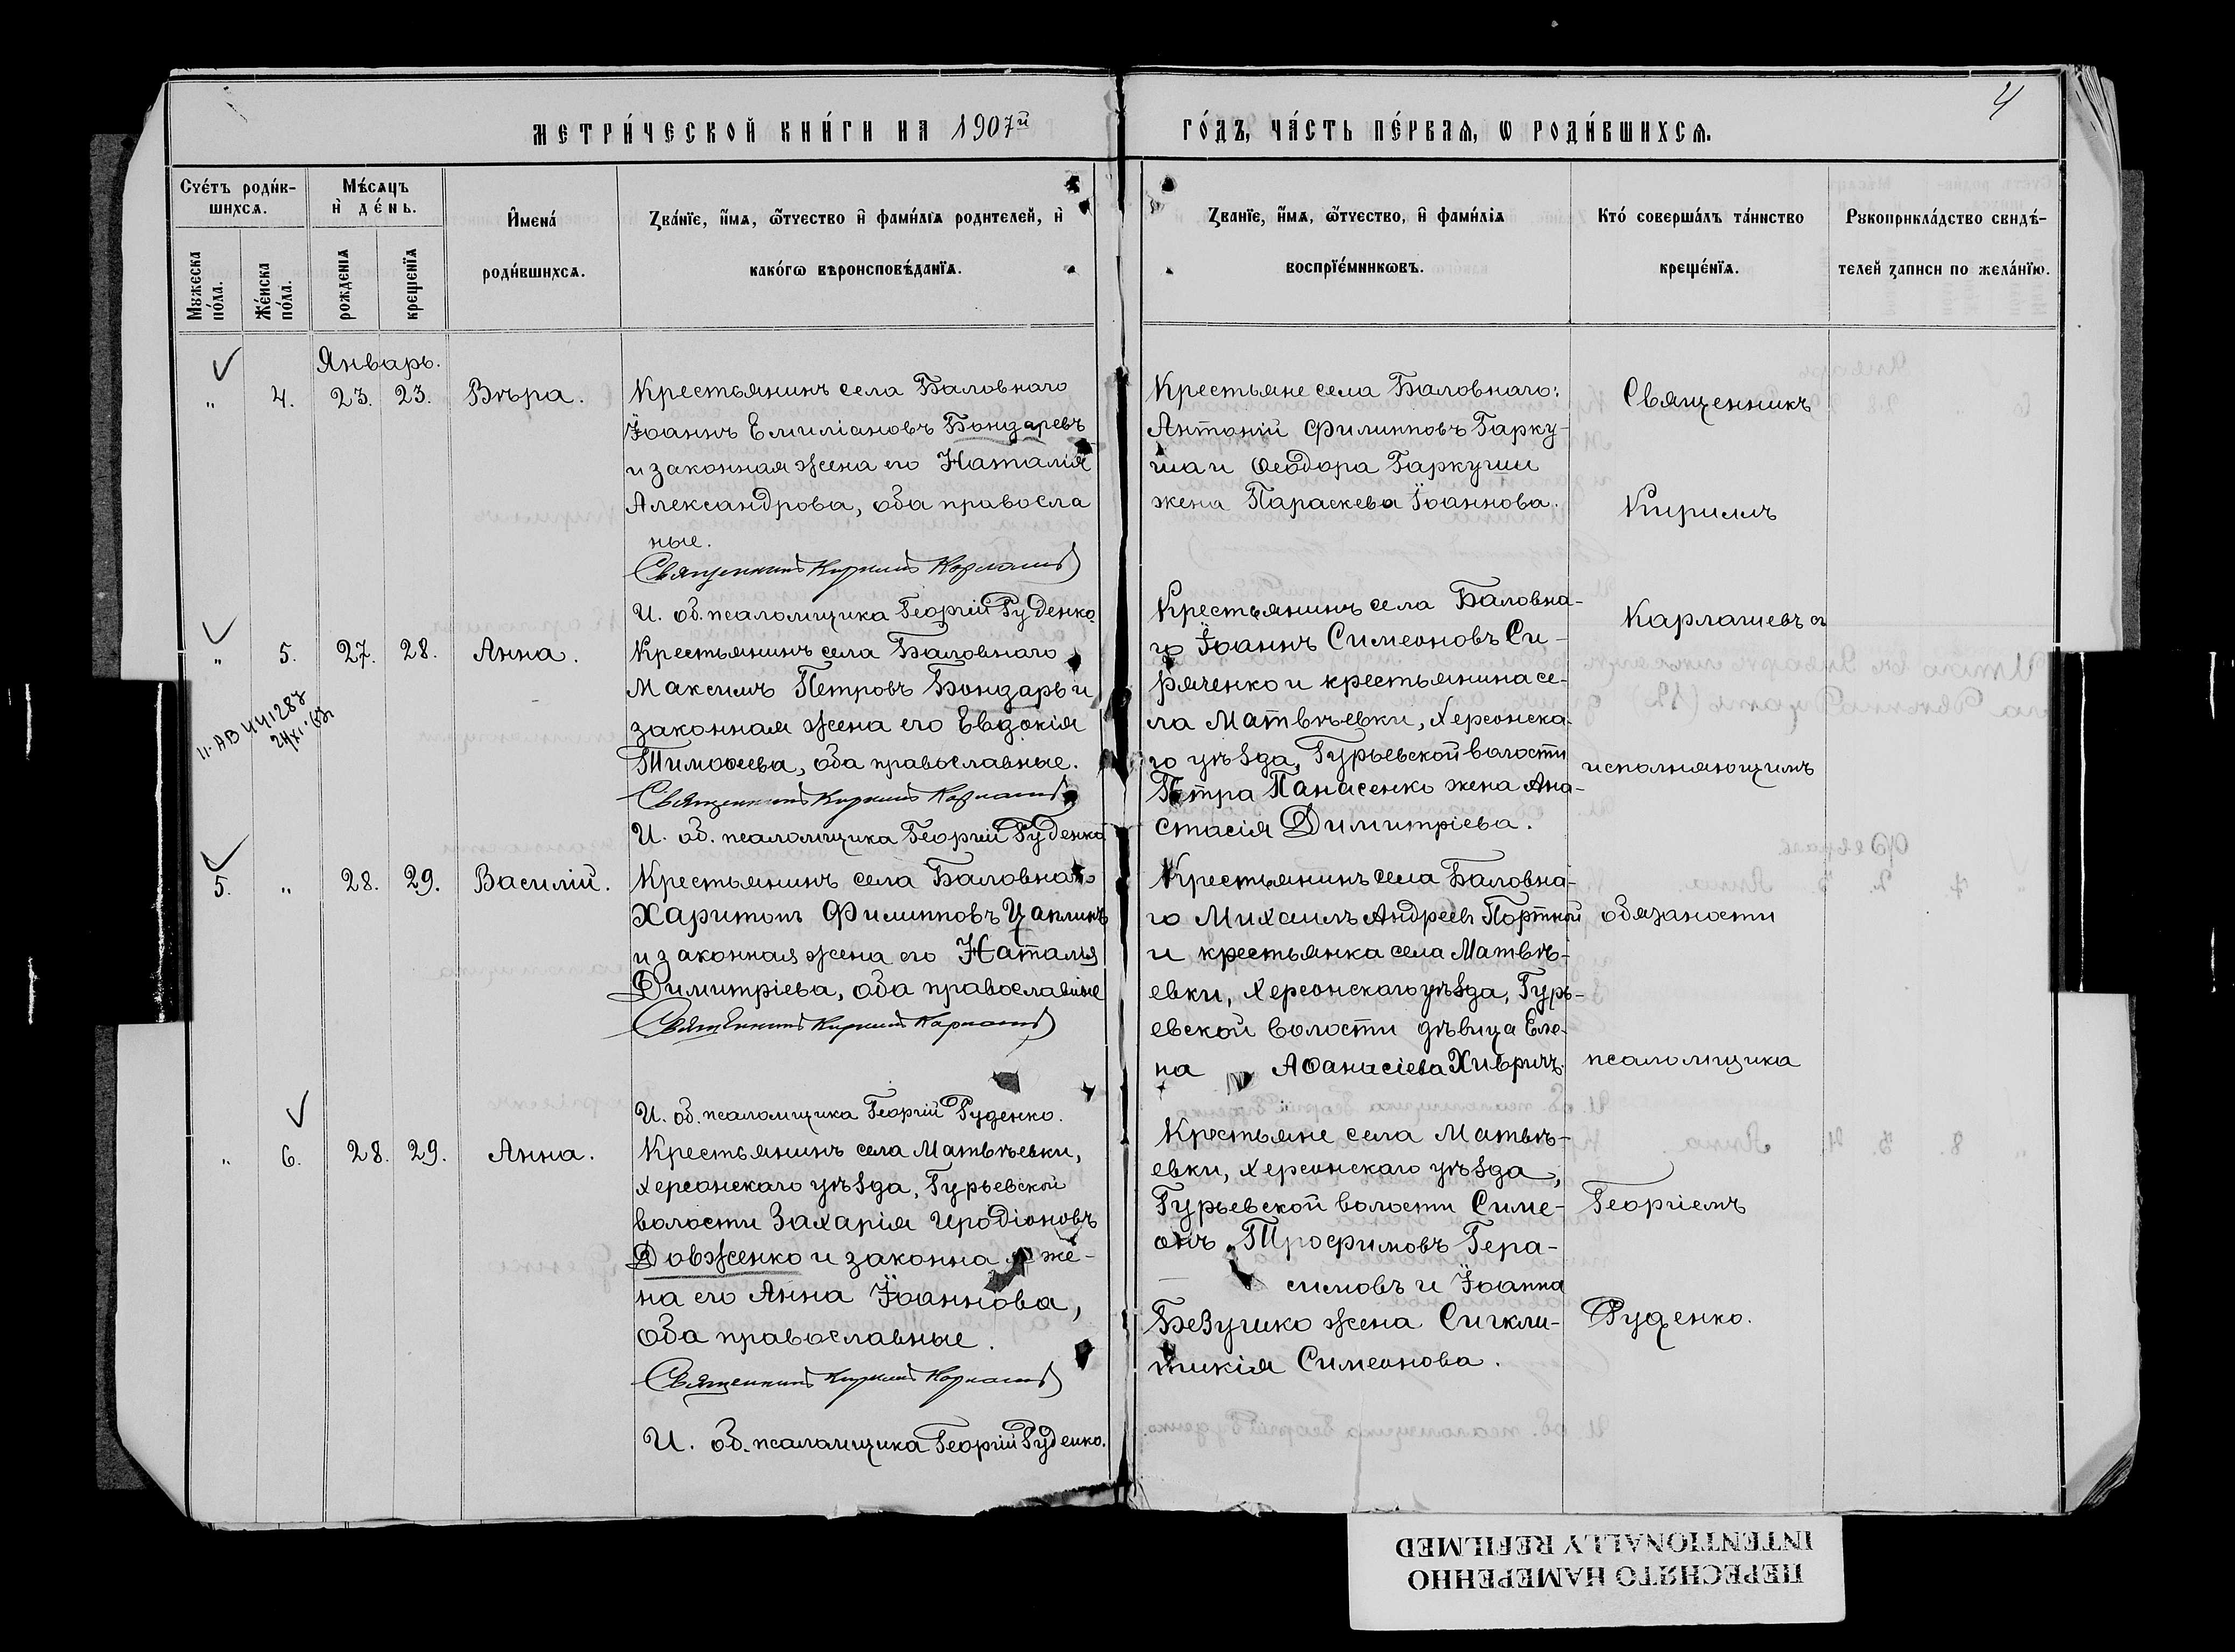 МЕТРИ́ЧЕСКОЙ КНИ́ГИ НА 1907й
ГО́ДЪ, ЧА́СТЬ ПЕ́РВАѦ, Ѡ РОДИ́ВШИХСѦ.
4
Сче́тъ роди́в-
шихсѧ.
Мꙋжеска
по́ла.
Же́нска
по́ла.
Мѣ́сѧцъ
и҆ де́нь.
рожденїѧ
крещенїѧ
И҆мена́
роди́вшихсѧ.
Зва́нїе, и҆́мѧ, ѻ҆́тчество и҆ фами́лїѧ родителей, и҆
како́гѡ вѣроисповѣ́данїѧ.
Званїе, и҆́мѧ, ѻ҆́тчество, и҆ фами́лїѧ
воспрїе́мникѡвъ.
Кто́ соверша́лъ та́инство
креще́нїѧ.
Рꙋкоприкла́дство свидѣ́-
телей записи по жела́нїю.
Январь.
" 4. 23. 23. Вѣра.
Крестьянинъ села Баловнаго
Іоаннъ Емиліановъ Бондаревъ
и законная жена его Наталія
Александрова, оба правосла
ные.
Священникъ Кириллъ Карлашевъ
И. об. псаломщика Георгій Руденко
Крестьяне села Баловнаго:
Антоній Филипповъ Гарку-
ша и Ѳеодора Гаркуши
жена Параскева Іоаннова.
" 5. 27. 28. Анна.
Крестьянинъ села Баловнаго
Максимъ Петровъ Бондарь и
законная жена его Евдокія
Тимоѳеева, оба православные.
Священникъ Кириллъ Карлашевъ
И. об. псаломщика Георгій Руденко
Крестьянинъ села Баловна-
го Іоаннъ Симеоновъ Си-
ряченко и крестьянина се-
ла Матвѣевки, Херсонска-
го уѣзда, Гурьевской волости
Петра Панасенко жена Ана-
стасія Димитріева.
5. " 28. 29. Василій.
Крестьянинъ села Баловнаго
Харитонъ Филипповъ Цаплинъ
и законная жена его Наталія
Димитріева, оба православные
Священникъ Кириллъ Карлашевъ
И. об. псаломщика Георгій Руденко.
Крестьянинъ села Баловна-
го Михаилъ Андреевъ Портной
и крестьянка села Матвѣ-
евки, Херсонскаго уѣзда, Гурь-
евской волости дѣвица Еле-
на Аѳанасіева Хибричъ.
" 6. 28. 29. Анна.
Крестьянинъ села Матвѣевки,
Херсонскаго уѣзда, Гурьевской
волости Захарія Иродіоновъ
Довженко и законная же-
на его Анна Іоаннова,
оба православные.
Священникъ Кириллъ Карлашевъ
И. об. псаломщика Георгій Руденко.
Крестьяне села Матвѣ-
евки, Херсонскаго уѣзда,
Гурьевской волости Симе-
онъ Трофимовъ Гера-
симовъ и Іоанна
Безушко жена Сигкли-
тикія Симеонова.
Священникъ
Кириллъ
Карлашевъ съ
исполняющимъ
обязаности
псаломщика
Георгіемъ
Руденко.
ПЕРЕСНЯТО НАМЕРЕННО
INTENTIONALLY REFILMED